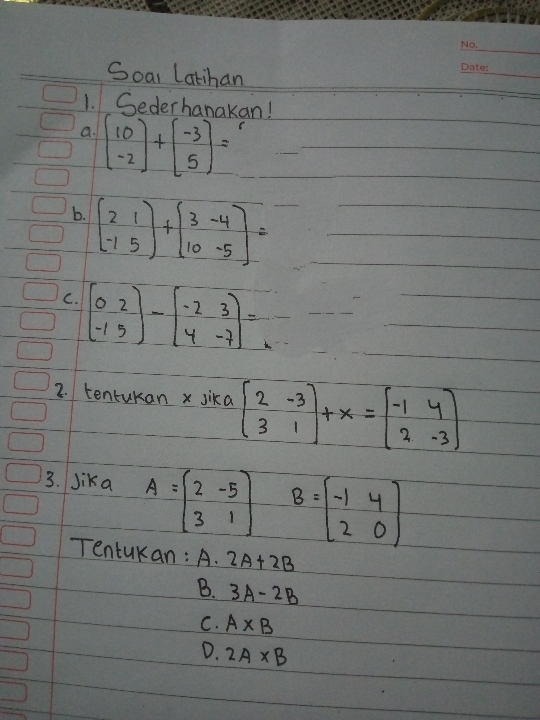 No.
Date:
Soal Latihan
1. Sederhanakan!
a. [10
-2] + [-3
5] =
b. [2 1
-1 5] + [3 -4
10 -5] =
c. [0 2
-1 5] - [-2 3
4 -7] =
2. tentukan x jika [2 -3
3 1] + x = [-1 4
2 -3]
3. Jika A = [2 -5
3 1] B = [-1 4
2 0]
Tentukan : A. 2A + 2B
B. 3A - 2B
C. A x B
D. 2A x B